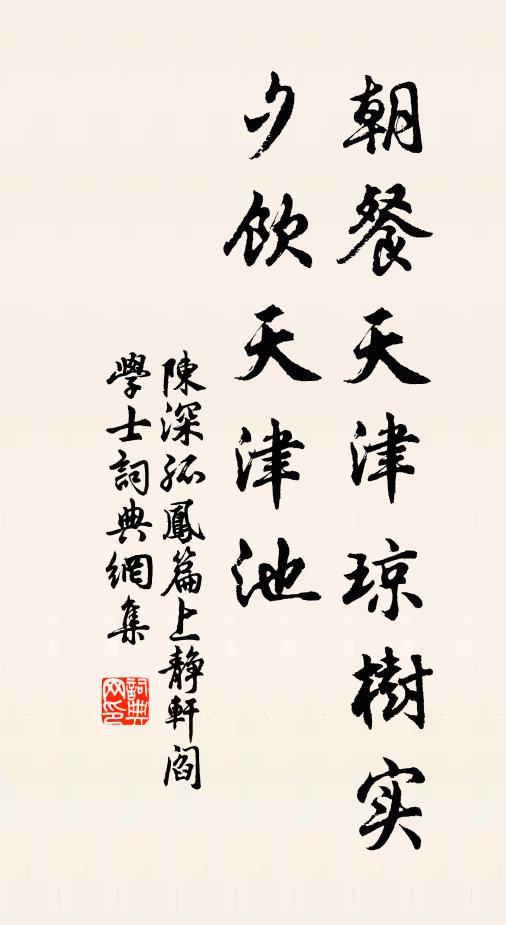 朝餐天津琼樹实
夕飲天津池
陳深孤鳳篇上靜軒閻
學士詞典網集
詞典
网印